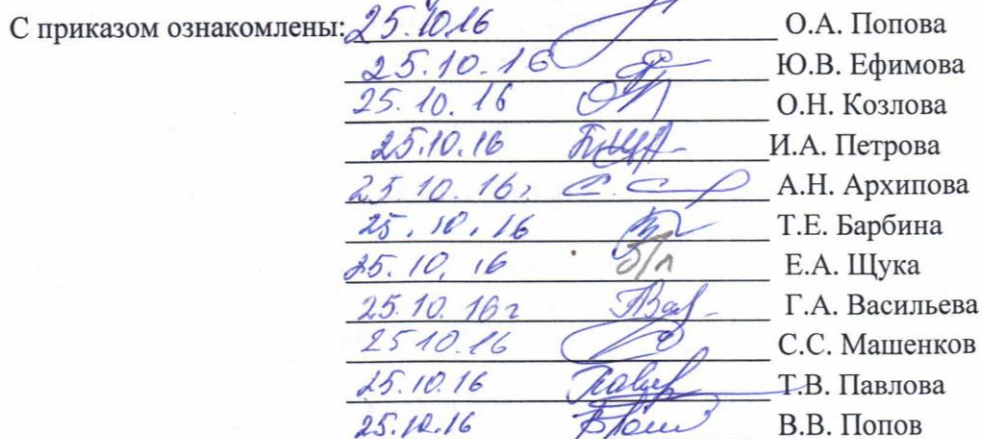 С приказом ознакомлены: 25.10.16 О.А. Попова
25.10.16 Ю.В. Ефимова
25.10.16 О.Н. Козлова
25.10.16 И.А. Петрова
25.10.16г А.Н. Архипова
25.10.16 Т.Е. Барбина
25.10.16 б/л Е.А. Щука
25.10.16г Г.А. Васильева
25 10.16 С.С. Машенков
25.10.16 Т.В. Павлова
25.10.16 В.В. Попов